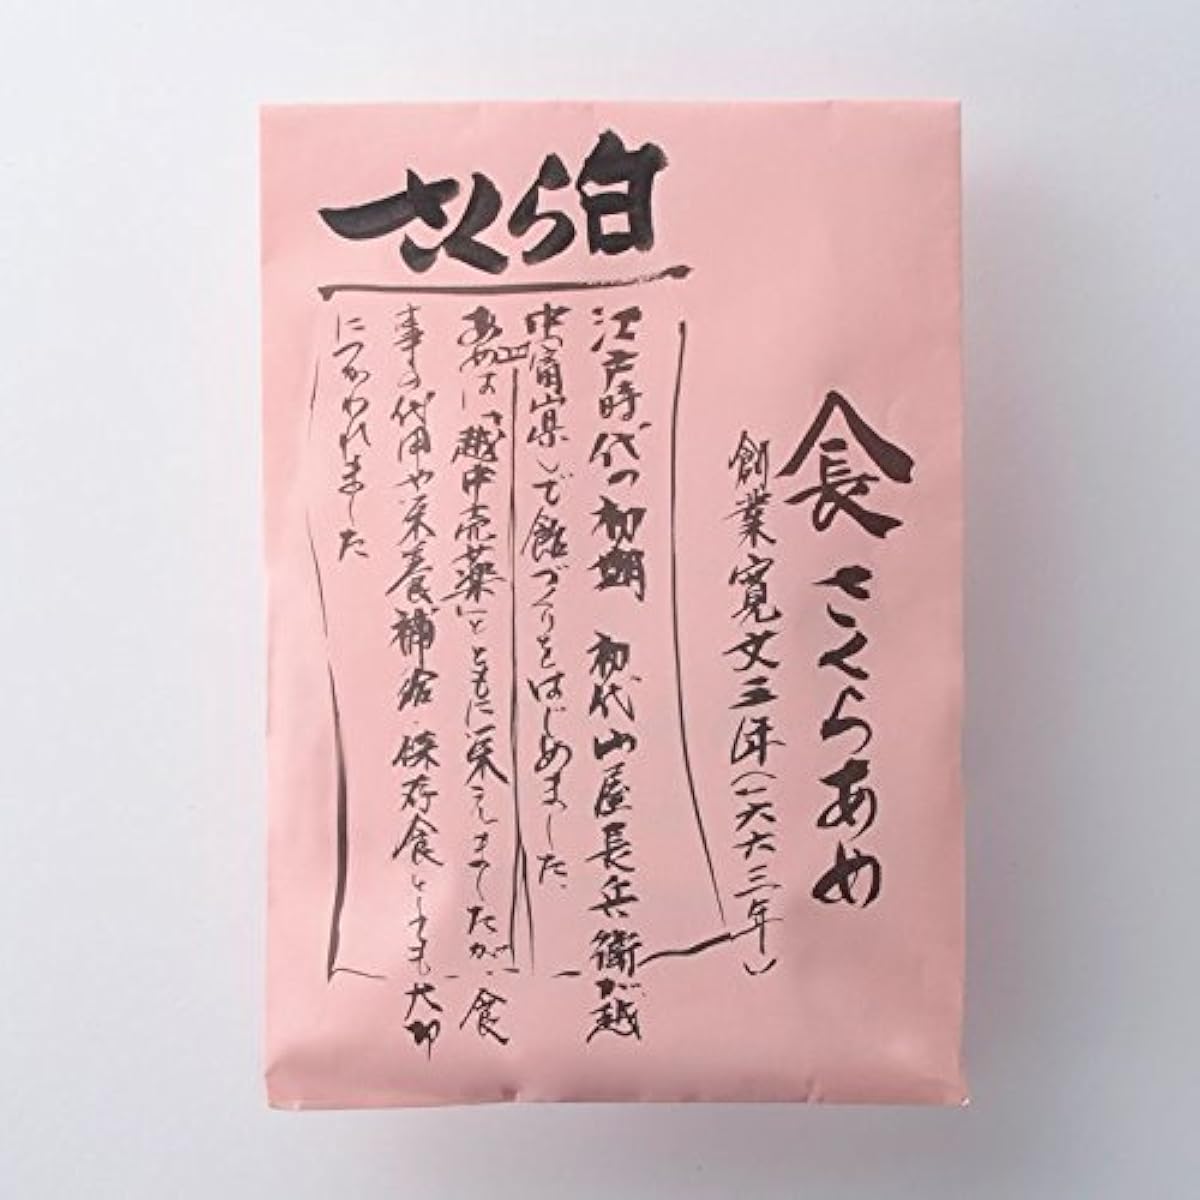 さくら白
長 さくらあめ
創業寛文三年(一六六三年)
江戸時代の初期 初代山屋長兵衛が越
中(富山県)で飴づくりをはじめました。
あめは、「越中売薬」とともに栄えましたが、食
事の代用や栄養補給・保存食としても大切
につかわれました